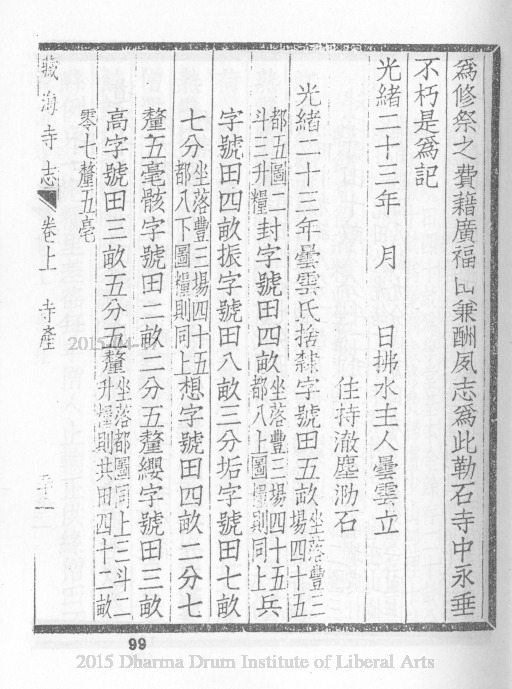 為修祭之費藉廣福田兼酬夙志為此勒石寺中永垂
不朽是為記
光緒二十三年　月　　日拂水主人曇雲立
住持澈塵泐石
光緒二十三年曇雲氏捨隸字號田五畝坐落豐三場四十五
都五圖二斗三升糧封字號田四畝坐落豐三場四十五都八上圖糧則同上兵
字號田四畝振字號田八畝三分垢字號田七畝
七分坐落豐三場四十五都八下圖糧則同上想字號田四畝二分七
釐五毫骸字號田二畝二分五釐纓字號田三畝
高字號田三畝五分五釐坐落都圖同上三斗二升糧則共田四十二畝
零七釐五毫
藏海寺志　卷上　寺產
99
2015 Dharma Drum Institute of Liberal Arts